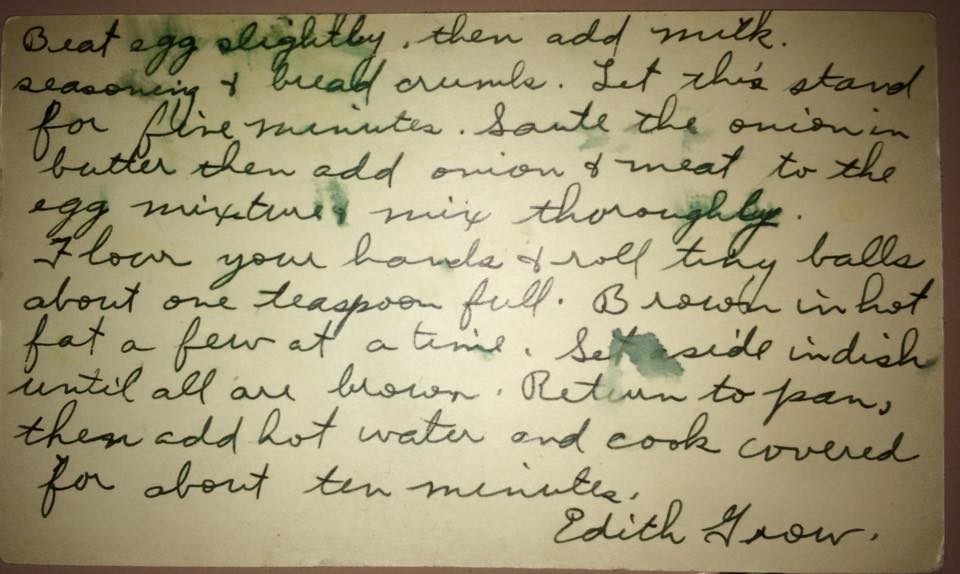 Beat egg slightly, then add milk.
seasoning & bread crumbs. Let this stand
for five minutes. Saute the onion in
butter then add onion & meat to the
egg mixture, mix thoroughly.
Flour your hands & roll tiny balls
about one teaspoon full. Brown in hot
fat a few at a time. Set aside in dish
until all are brown. Return to pan,
then add hot water and cook covered
for about ten minutes.
Edith Grow.